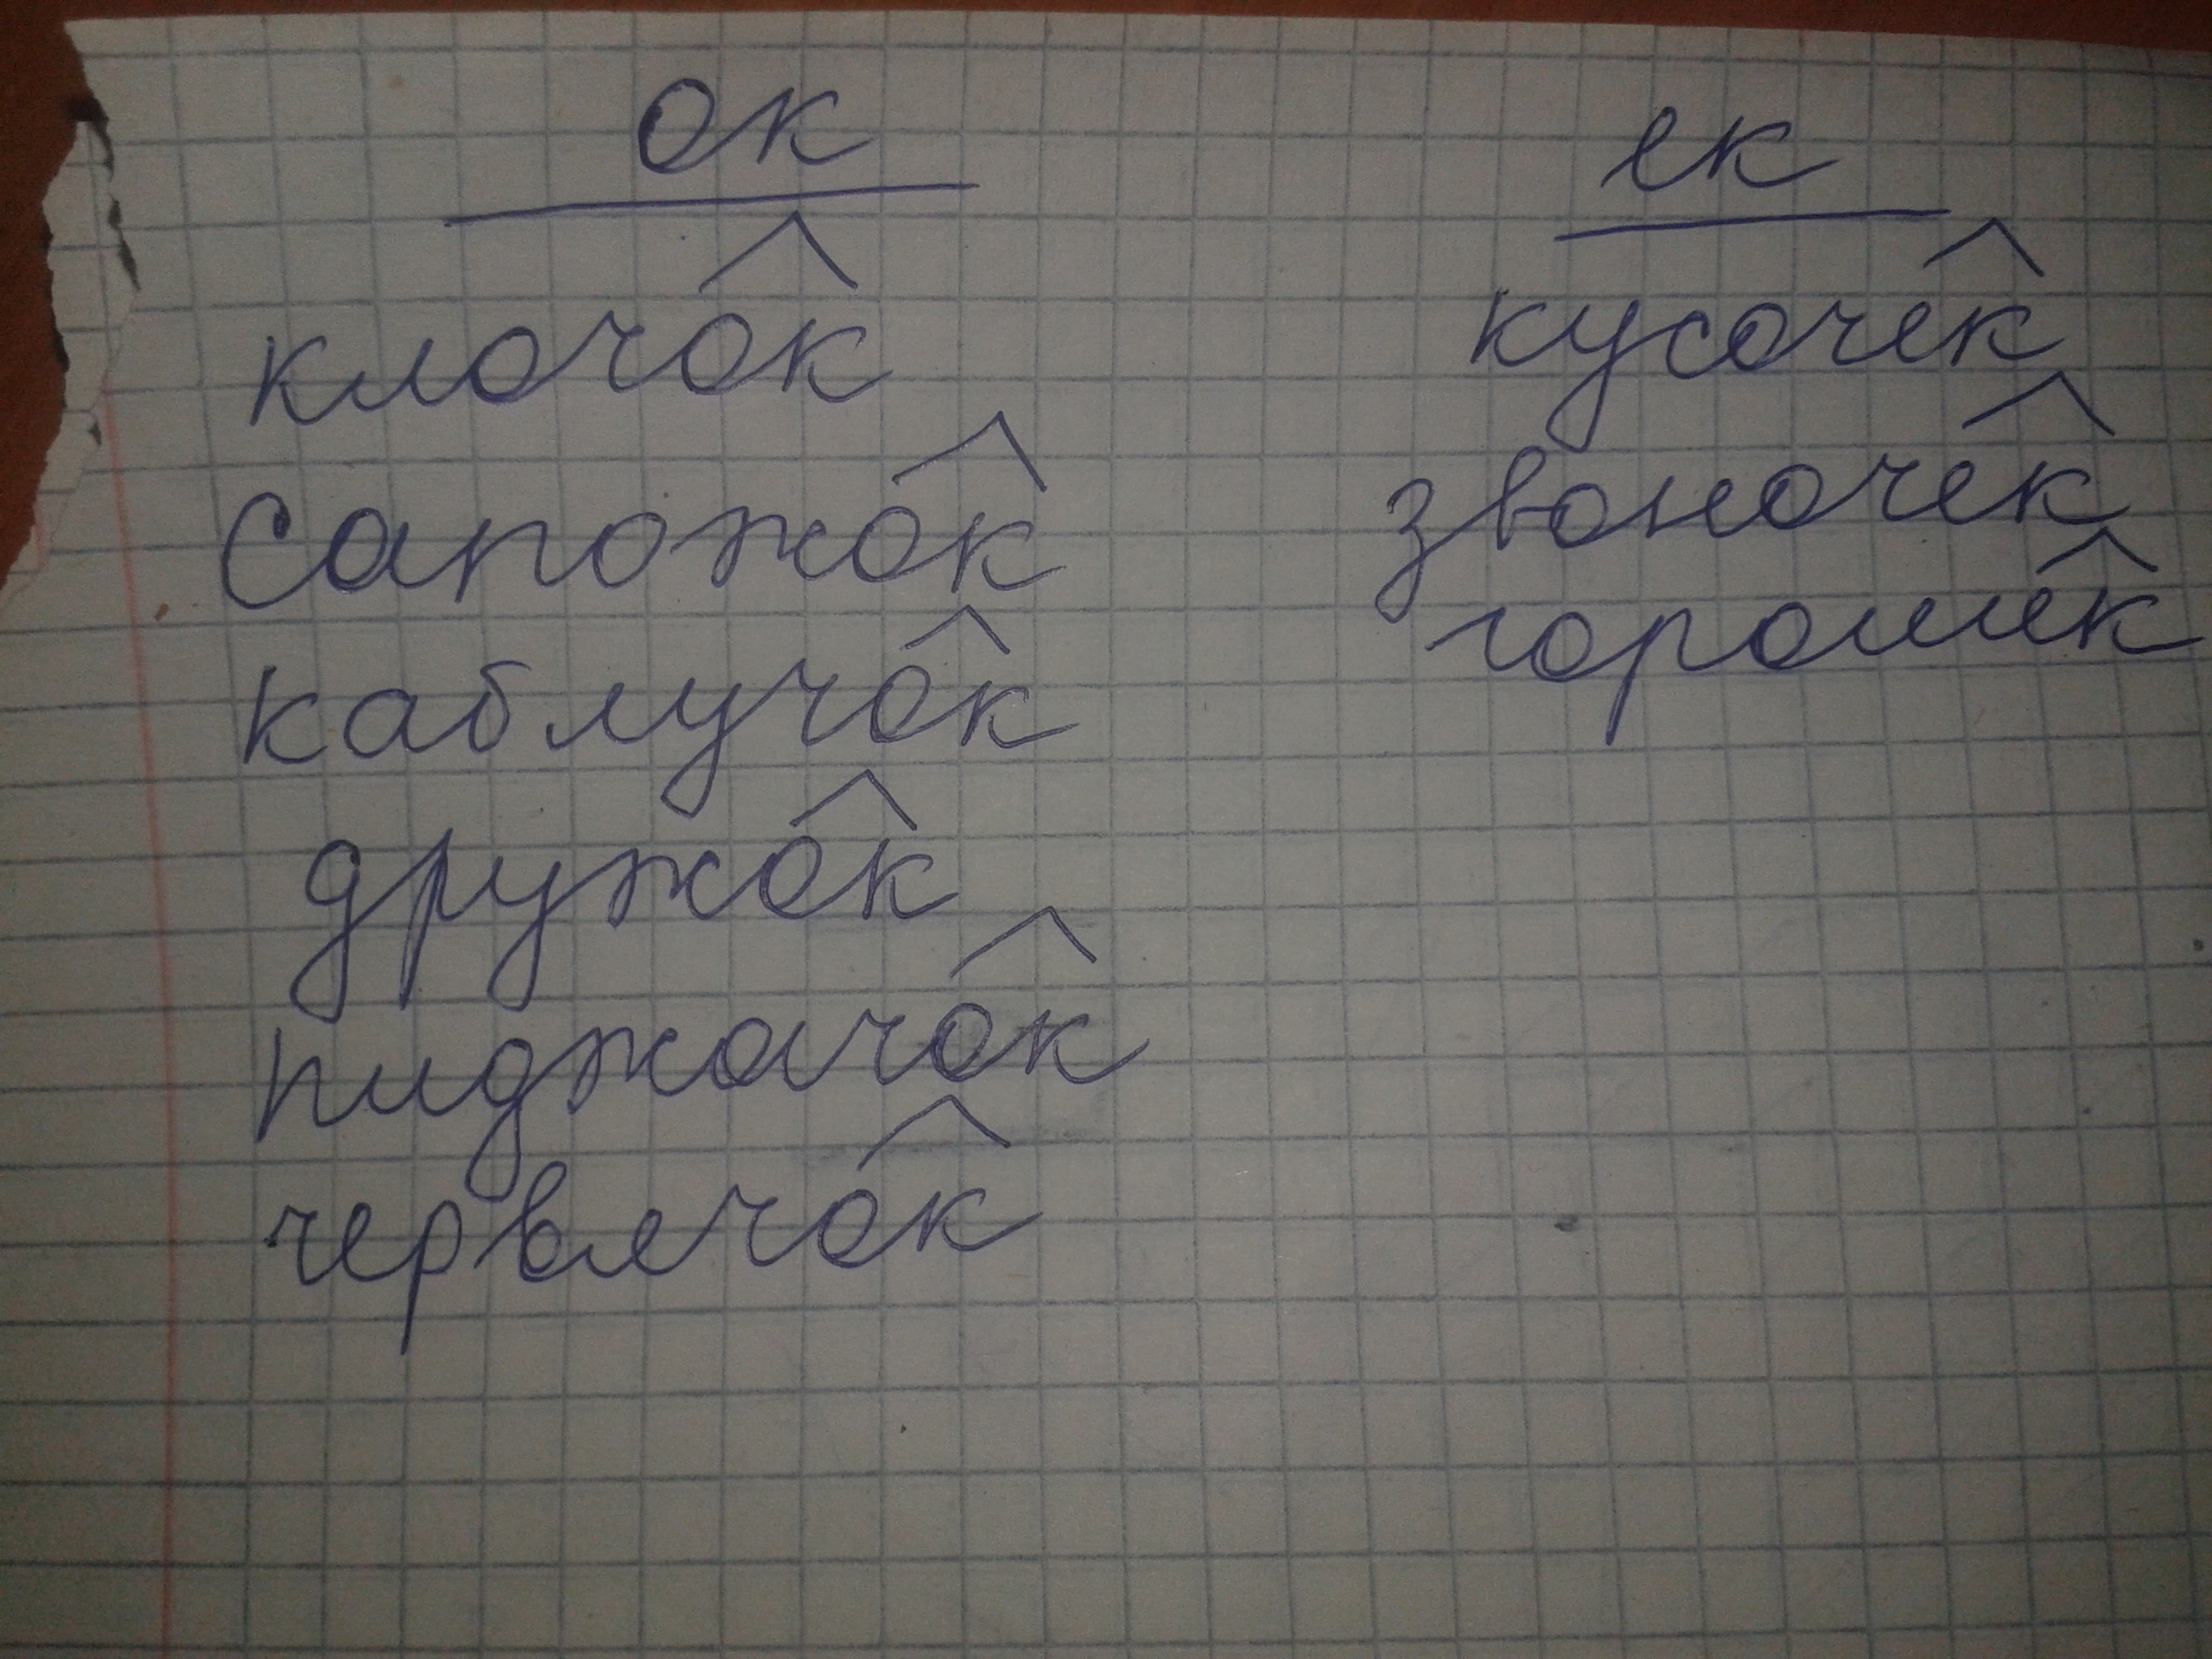 ок
клочок
сапожок
каблучок
дружок
пиджачок
червячок
ек
кусочек
звоночек
горошек